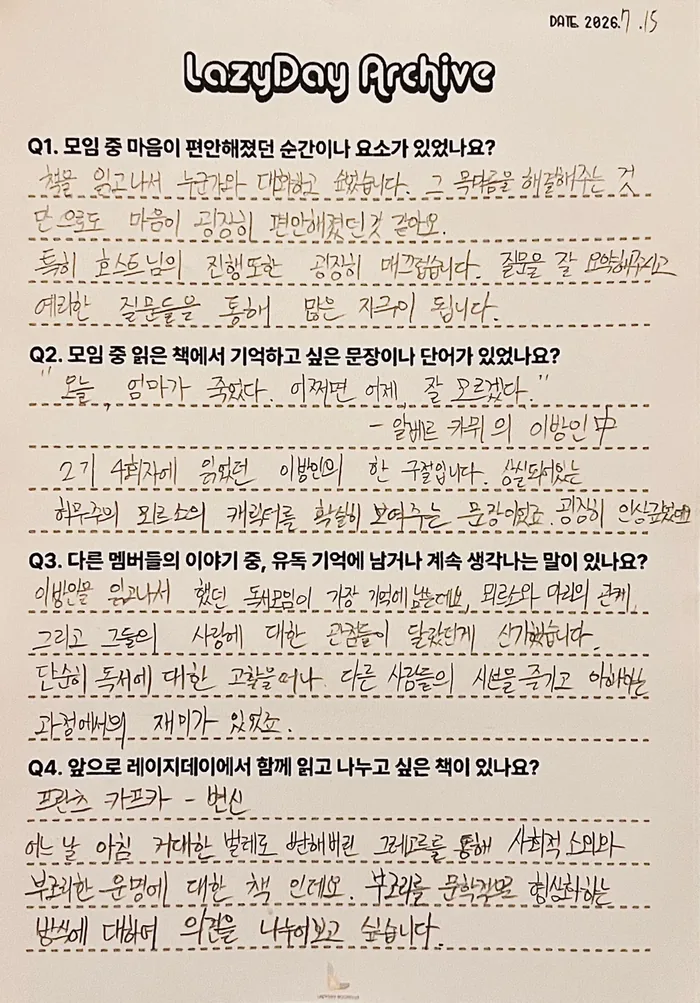 DATE. 2026. 7 . 15
LazyDay Archive
Q1. 모임 중 마음이 편안해졌던 순간이나 요소가 있었나요?
책을 읽고나서 누군가와 대화하고 싶었습니다. 그 목마름을 해결해주는 것
만으로도 마음이 굉장히 편안해졌던것 같아요.
특히 호스트님의 진행또한 굉장히 매끄럽습니다. 질문을 잘 요약해주시고
예리한 질문들을 통해 많은 자극이 됩니다.
Q2. 모임 중 읽은 책에서 기억하고 싶은 문장이나 단어가 있었나요?
"오늘, 엄마가 죽었다. 어쩌면 어제, 잘 모르겠다."
- 알베르 카뮈의 이방인 中
2기 4회차에 읽었던 이방인의 한 구절입니다. 상실되어있는
허무주의 뫼르소의 캐릭터를 확실히 보여주는 문장이었죠. 굉장히 인상깊었
Q3. 다른 멤버들의 이야기 중, 유독 기억에 남거나 계속 생각나는 말이 있나요?
이방인을 읽고나서 했던 독서모임이 가장 기억에 남는데요, 뫼르소와 마리의 관계,
그리고 그들의 사랑에 대한 관점들이 달랐던게 신기했습니다.
단순히 독서에 대한 고찰을 떠나 다른 사람들의 시선을 즐기고 이해하는
과정에서의 재미가 있었죠.
Q4. 앞으로 레이지데이에서 함께 읽고 나누고 싶은 책이 있나요?
프란츠 카프카 - 변신
어느 날 아침 거대한 벌레로 변해버린 그레고르를 통해 사회적 소외와
부조리한 운명에 대한 책 인데요. 부조리를 문학적으로 형상화하는
방식에 대하여 의견을 나누어보고 싶습니다.